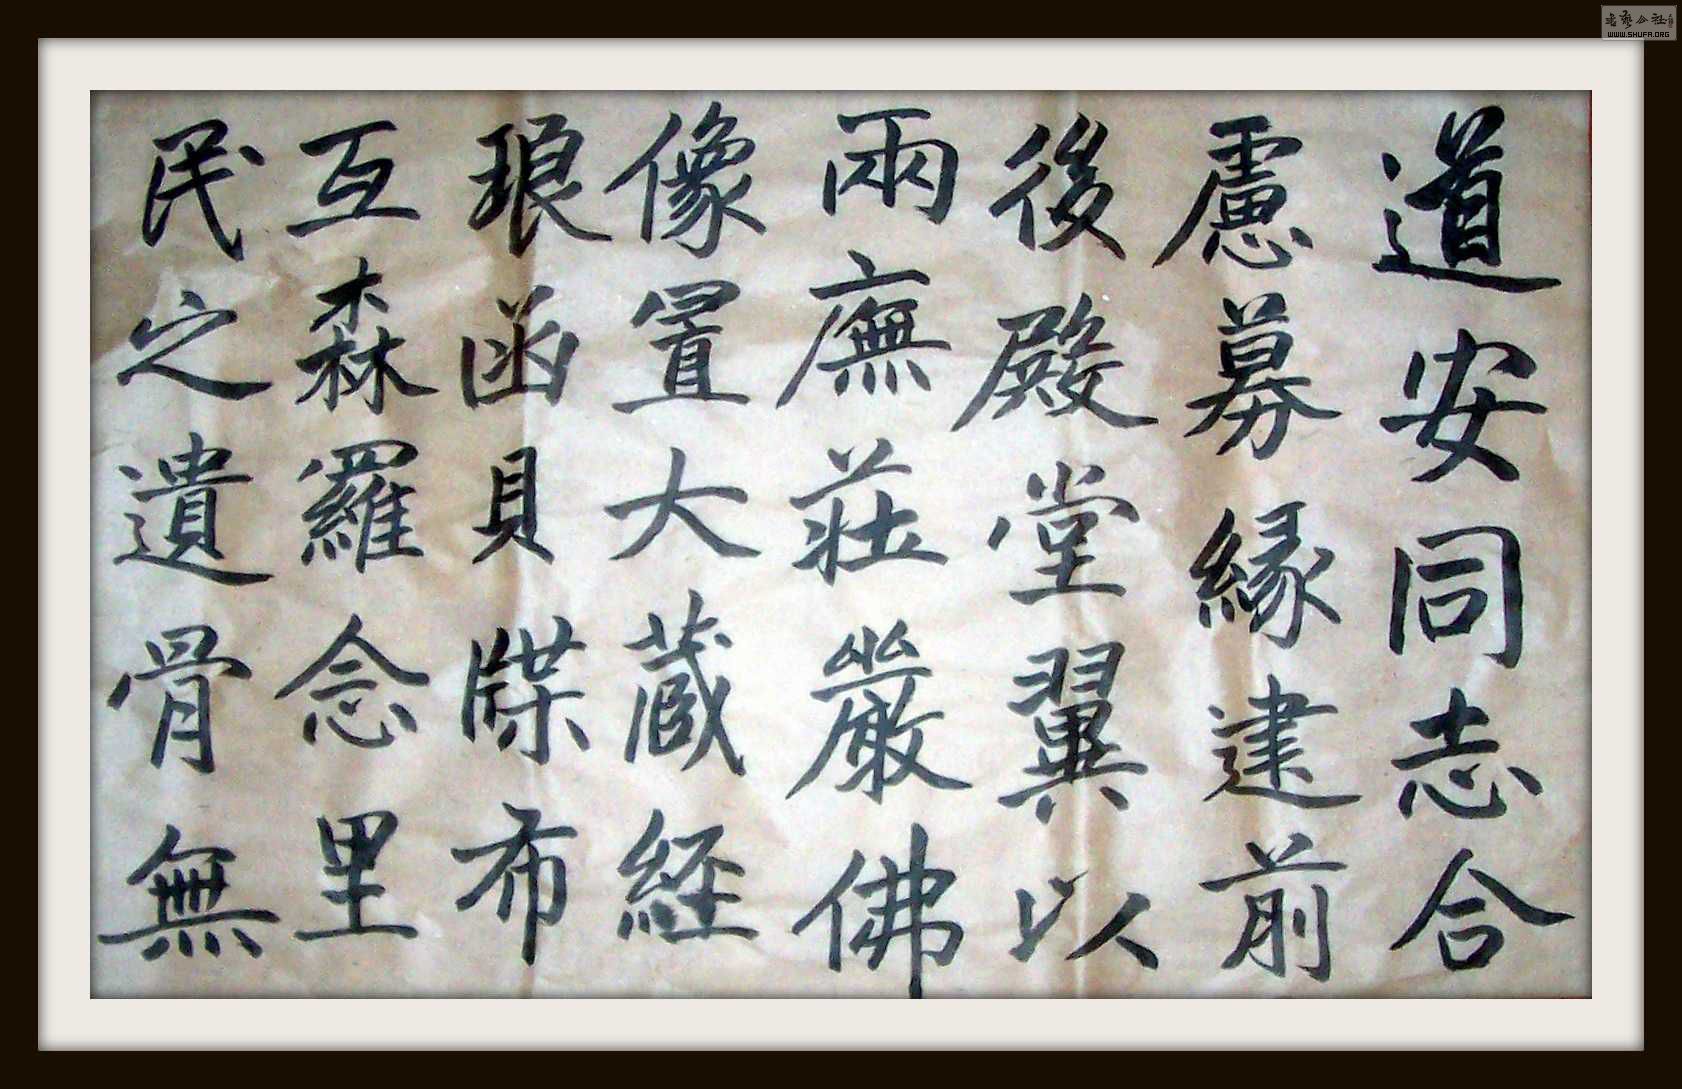 道安同志合
慮募緣建前
後殿堂翼以
兩廡莊嚴佛
像置大蔵経
琅函貝牒布
互森羅念里
民之遺骨無
WWW.SHUFA.ORG